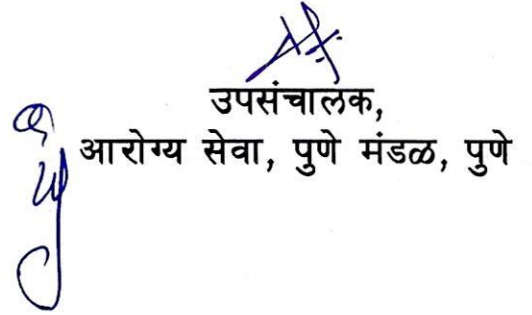 उपसंचालक,
आरोग्य सेवा, पुणे मंडळ, पुणे